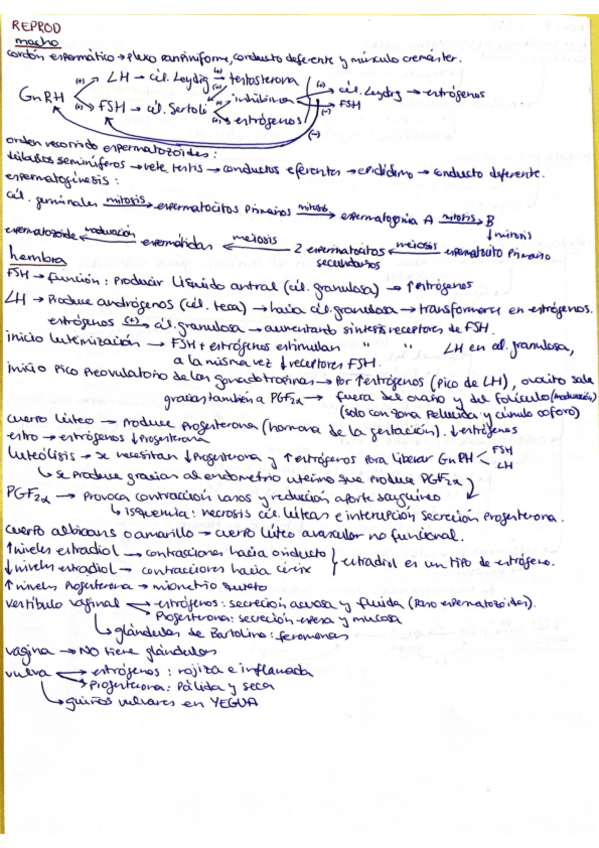 REPROD
macho
cordón espermático → plexo panpiniforme, conducto deferente y músculo cremáster.
GnRH (+) LH → cél. Leydig (+) → testosterona
(+) FSH → cél. Sertoli inhibina (+) cél. Leydig → estrógenos
(+) estrógenos (-) FSH
(-)
orden recorrido espermatozoides:
túbulos seminíferos → rete testis → conductos eferentes → epidídimo → conducto deferente.
espermatogénesis:
cél. germinales mitosis → espermatocitos primarios mitosis → espermatogonia A mitosis → B
↓ mitosis
espermatozoide ← maduración espermátidas ← meiosis 2 espermatocitos secundarios ← meiosis espermatocito primario
hembra
FSH → función: producir líquido antral (cél. granulosa) → ↑estrógenos
LH → Produce andrógenos (cél. teca) → hacia cél. granulosa → transformarse en estrógenos.
estrógenos (+) → cél. granulosa → aumentando síntesis receptores de FSH.
inicio luteinización → FSH + estrógenos estimulan " " LH en cél. granulosa,
a la misma vez ↓ receptores FSH.
inicio Pico Preovulatorio de las gonadotropinas → Por ↑estrógenos (pico de LH), ovocito sale
gracias también a PGF2α → fuera del ovario y del folículo (maduración)
(solo con zona pelúcida y cúmulo ooforo)
cuerpo lúteo → Produce Progesterona (hormona de la gestación). ↓estrógenos
estro → estrógenos ↓Progesterona
luteólisis → se necesitan ↓Progesterona y ↑estrógenos para liberar GnRH FSH
LH
↳ se produce gracias al endometrio uterino que produce PGF2α
PGF2α → Provoca contracción vasos y reducción aporte sanguíneo
↳ isquemia: necrosis cél. lúteas e interrupción secreción Progesterona.
cuerpo albicans o amarillo → cuerpo lúteo avascular no funcional.
↑niveles estradiol → contracciones hacia oviducto
↓niveles estradiol → contracciones hacia cérvix } estradiol es un tipo de estrógeno.
↑niveles Progesterona → miometrio quieto
vestíbulo vaginal estrógenos: secreción acuosa y fluida (Paso espermatozoides).
Progesterona: secreción espesa y mucosa
↳ glándulas de Bartolino: feromonas
vagina → NO tiene glándulas
vulva estrógenos: rojiza e inflamada
Progesterona: Pálida y seca
↳ guiños vulvares en YEGUA